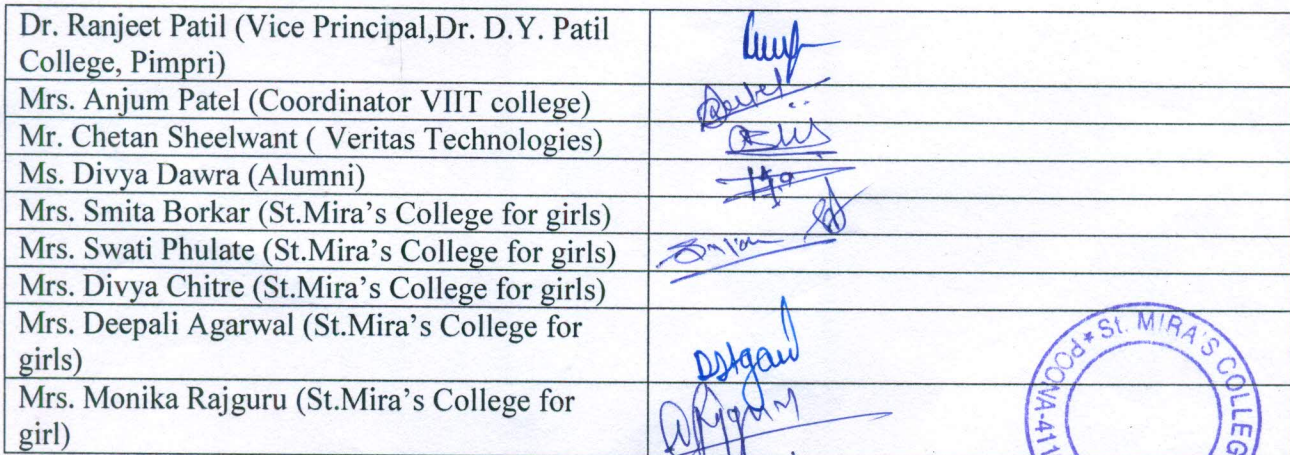 Dr. Ranjeet Patil (Vice Principal,Dr. D.Y. Patil
College, Pimpri)
Mrs. Anjum Patel (Coordinator VIIT college)
Mr. Chetan Sheelwant ( Veritas Technologies)
Ms. Divya Dawra (Alumni)
Mrs. Smita Borkar (St.Mira's College for girls)
Mrs. Swati Phulate (St.Mira's College for girls)
Mrs. Divya Chitre (St.Mira's College for girls)
Mrs. Deepali Agarwal (St.Mira's College for
girls)
Mrs. Monika Rajguru (St.Mira's College for
girl)
POONA-411 * St. MIRA'S COLLEG